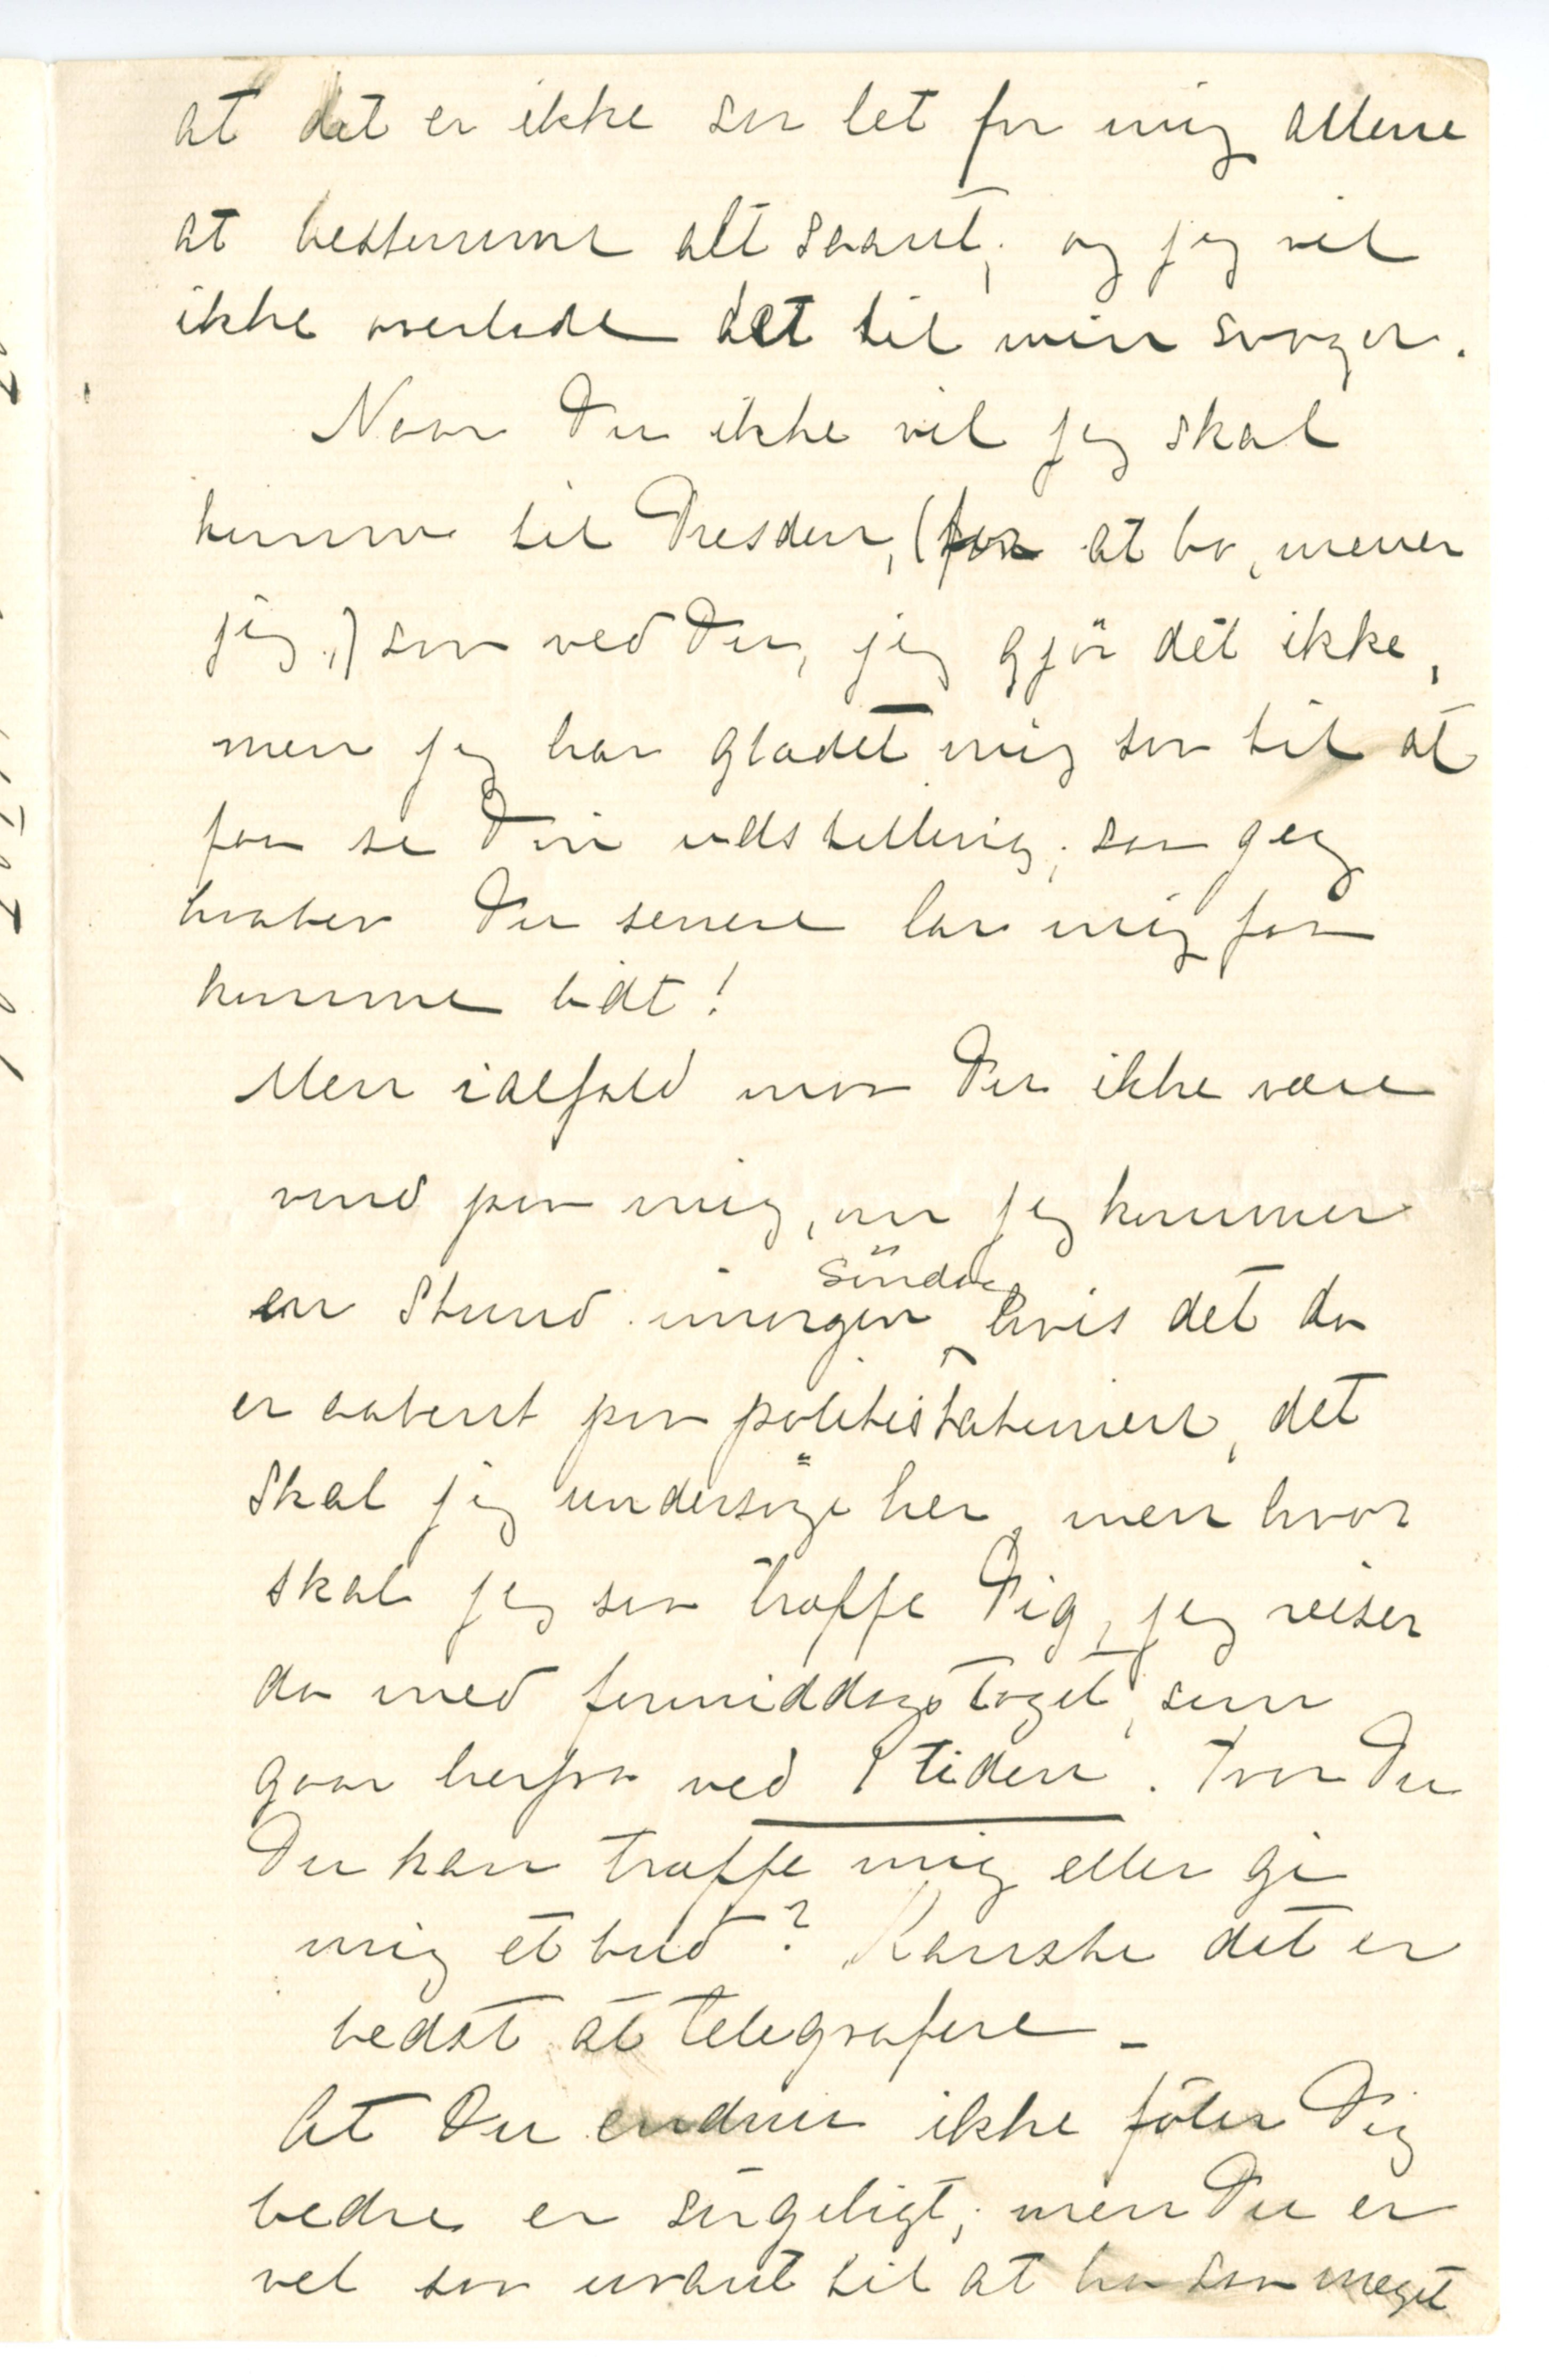 at det er ikke saa let for mig allene
at bestemme alt saant; og jeg vil
ikke overlade det til min svoger.
Naar Du ikke vil jeg skal
komme til Dresden, (for at bo, mener
jeg,) saa ved Du, jeg gjör det ikke,
men jeg har glædet mig saa til at
faa se Din udstilling; saa jeg
haaber Du senere lar mig faa
komme didt!
Men ialfald maa Du ikke være
vred paa mig, om jeg kommer
en Stund imorgen söndag hvis det da
er aabent paa politistationen, det
skal jeg undersöge her, men hvor
skal jeg saa træffe Dig, jeg reiser
da med formiddagstoget, som
gaar herfra ved 9 tiden. Tror Du
Du kan træffe mig eller gi
mig et bud? Kanske det er
bedst at telegrafere –
At Du endnu ikke föler Dig
bedre er sörgeligt; men Du er
vel saa uvant til at ha saa meget